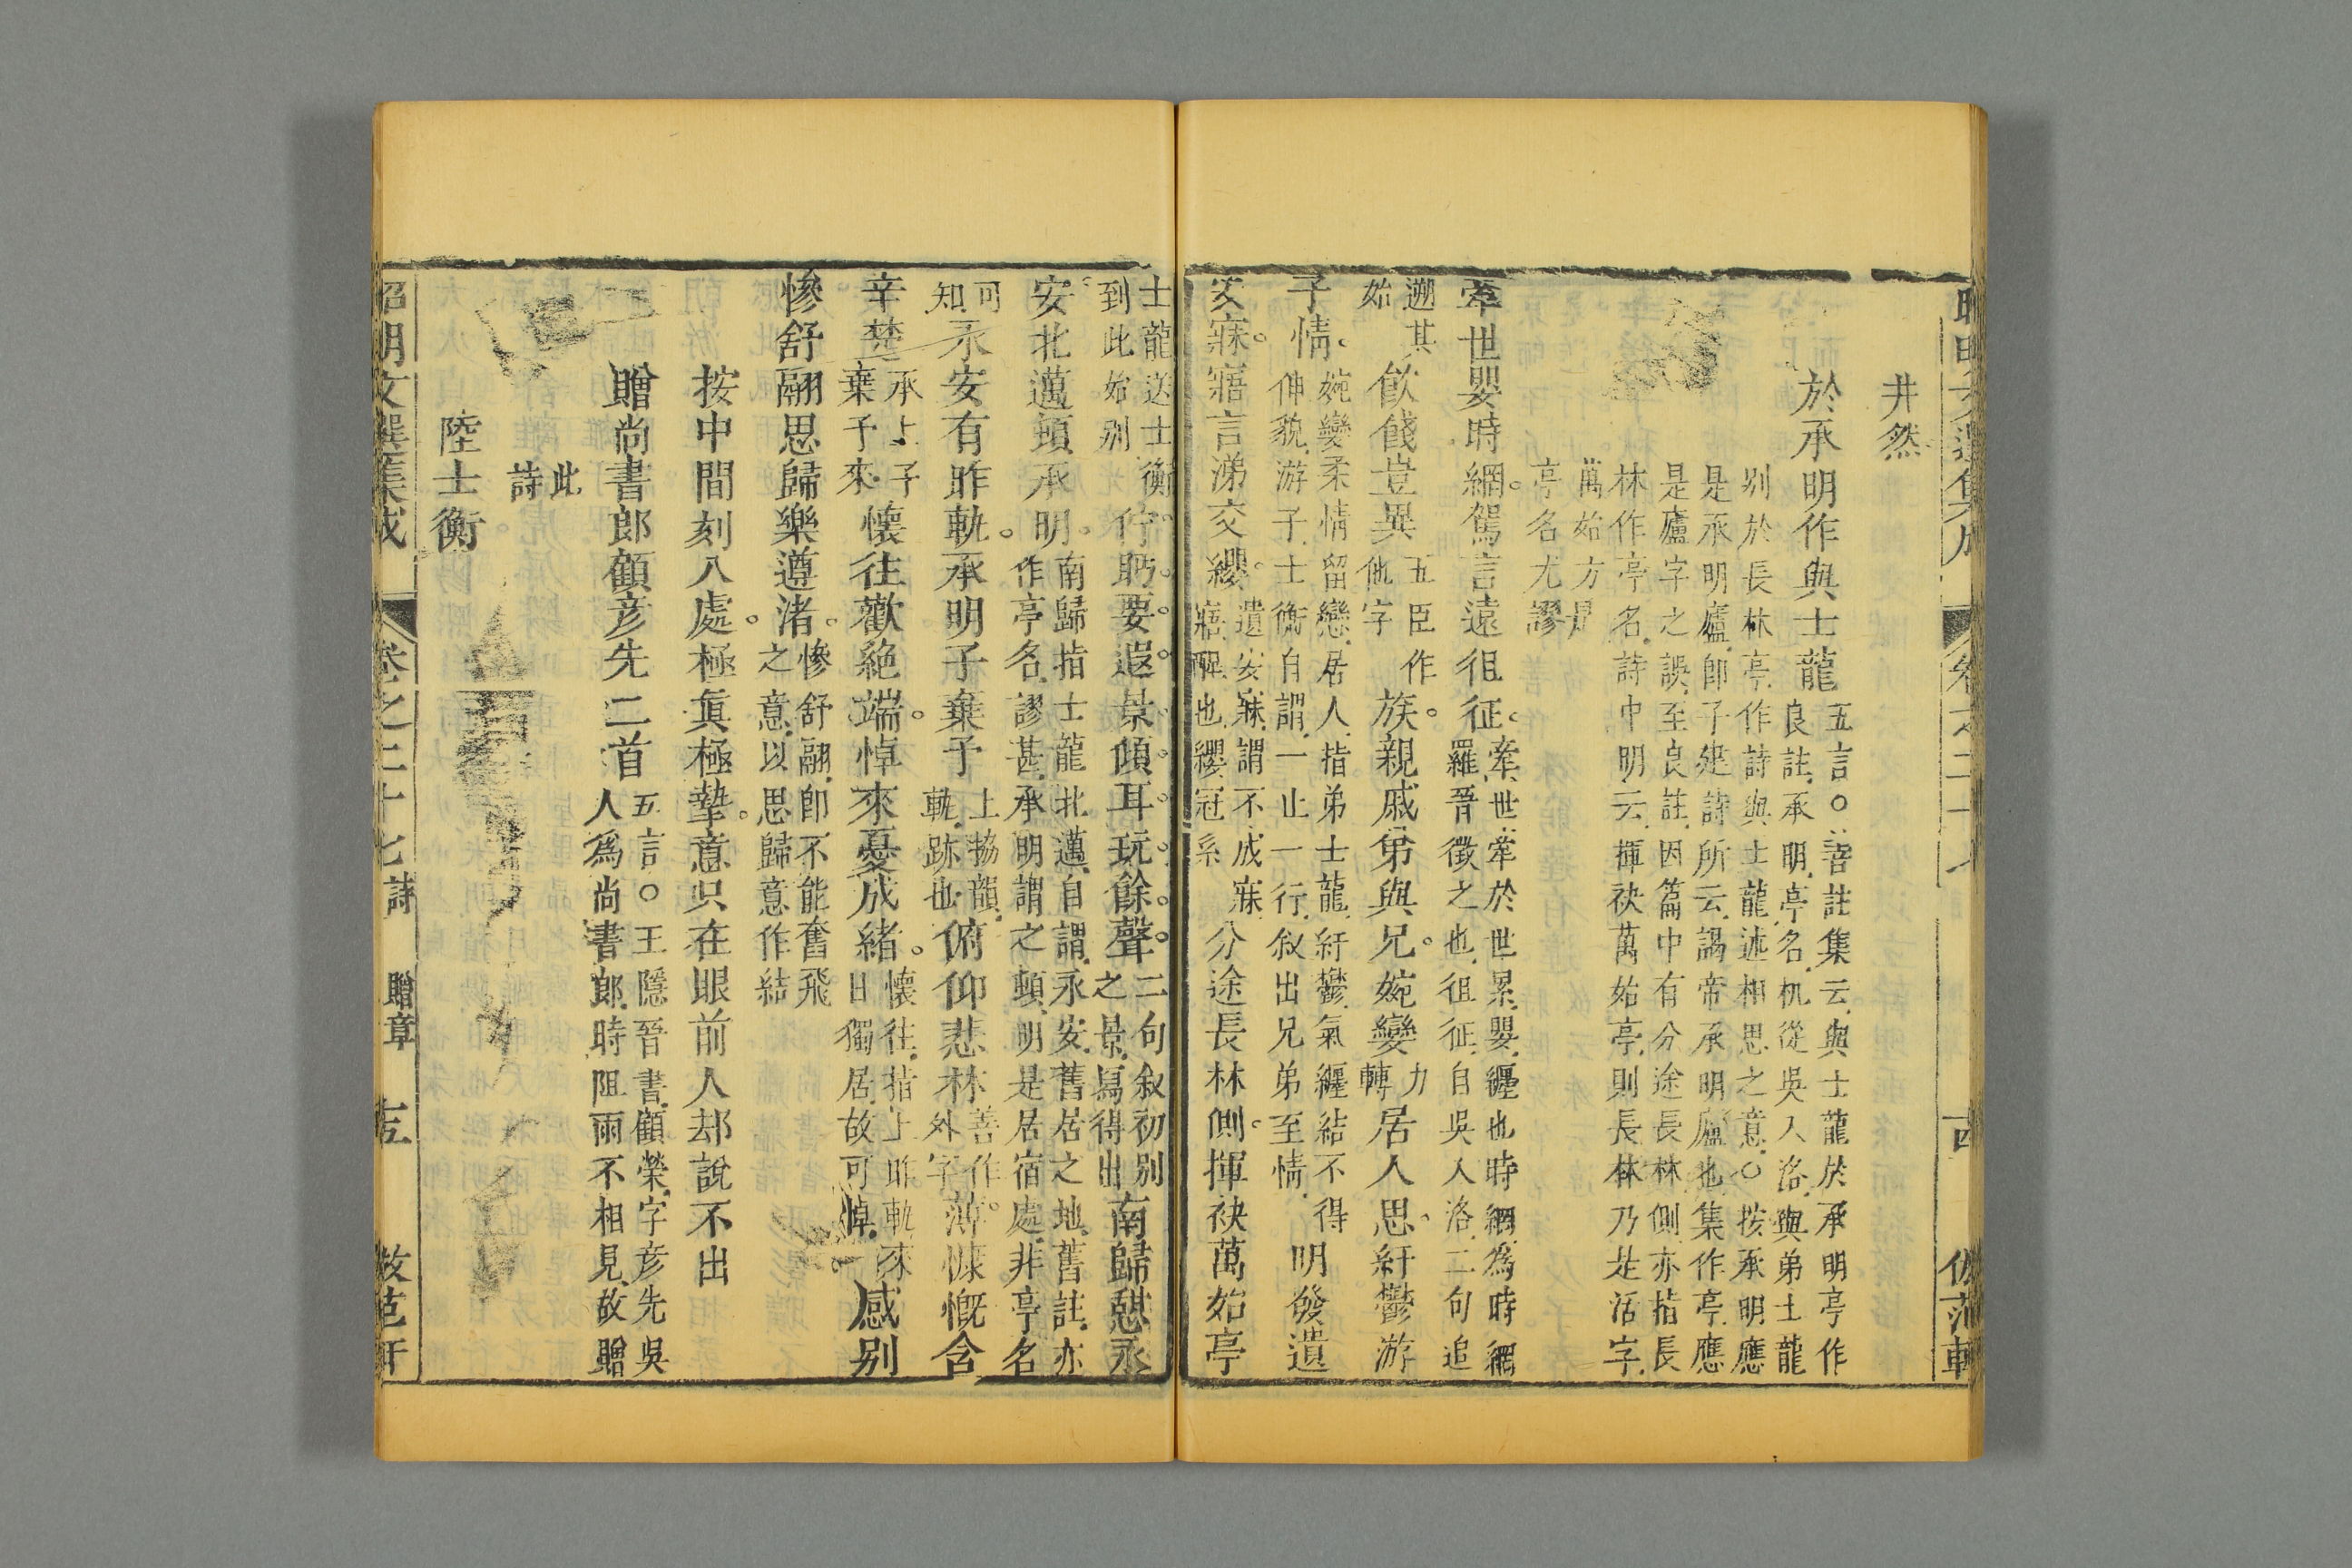 井然
於承明作與士龍
五言○善註集云與士龍於承明亭作
良註承明亭名机從吳入洛與弟士龍
别於長林亭作詩與士龍述相思之意○按承明應
是承明廬即子建詩所云謁帝承明廬也集作亭應
是廬字之誤至良註因篇中有分途長林側亦指長
林作亭名詩中明云揮袂萬始亭則長林乃是活字
萬始方是
亭名尤謬
牽世嬰時網駕言遠徂征
牽世牽於世累嬰纏也時網為時網
羅晉徵之也徂征自吳入洛二句追
遡其
始
飲餞豈異
五臣作
他字
族親戚弟與兄婉孌
力
轉
居人思紆鬱游
子情
婉孌柔情留戀居人指弟士龍紆鬱氣纒結不得
伸貌游子士衡自謂一止一行叙出兄弟至情
明發遺
安寐寤言涕交纓
遺安寐謂不成寐
寤醒也纓冠系
分途長林側揮袂萬始亭
士龍送士衡
到此始别
佇眄要遐景傾耳玩餘聲
二句叙初别
之景寫得出
南歸憇永
安北邁頓承明
南歸指士龍北邁自謂永安舊居之地舊註亦
作亭名謬甚承明謂之頓明是居宿處非亭名
可
知
永安有昨軌承明子棄予
上協韻
軌跡也
俯仰悲林
善作
外字
薄慷慨含
辛楚
承上子
棄予來
懷往歡絶端悼來憂成緒
懷往指上昨軌來
日獨居故可悼
感别
慘舒翮思歸樂遵渚
慘舒翮即不能奮飛
之意以思歸意作結
按中間刻入處極眞極摯意只在眼前人却說不出
贈尚書郎顧彦先二首
五言○王隱晉書顧榮字彦先吳
人為尚書郎時阻雨不相見故贈
此
詩
陸士衡
昭明文選集成
卷之二十七
詩
贈章